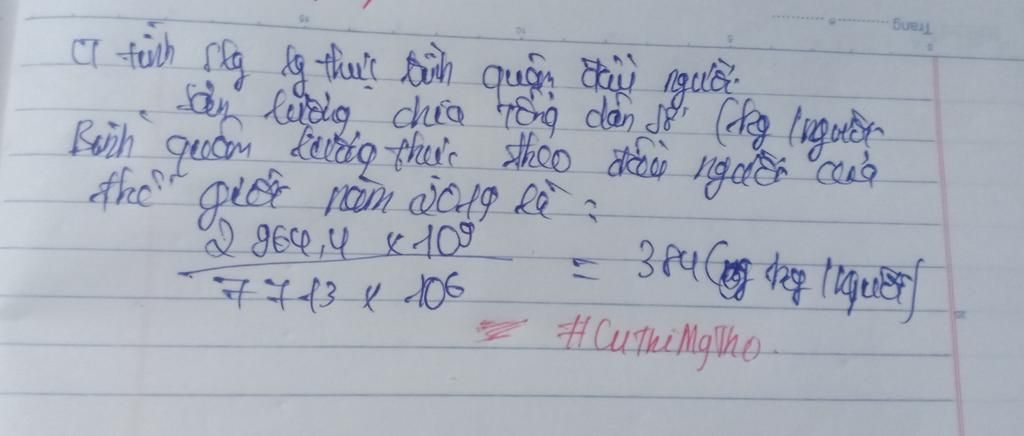 CT tính Slg lg thực bình quân đầu người.
Sản lượng chia tổng dân số (kg/người
Bình quân lương thực theo đầu người của
thế giới năm 2019 là :
2 964,4 x 10⁹
7713 x 10⁶
= 384 (kg/người)
#CuThiMgTho.
Trang